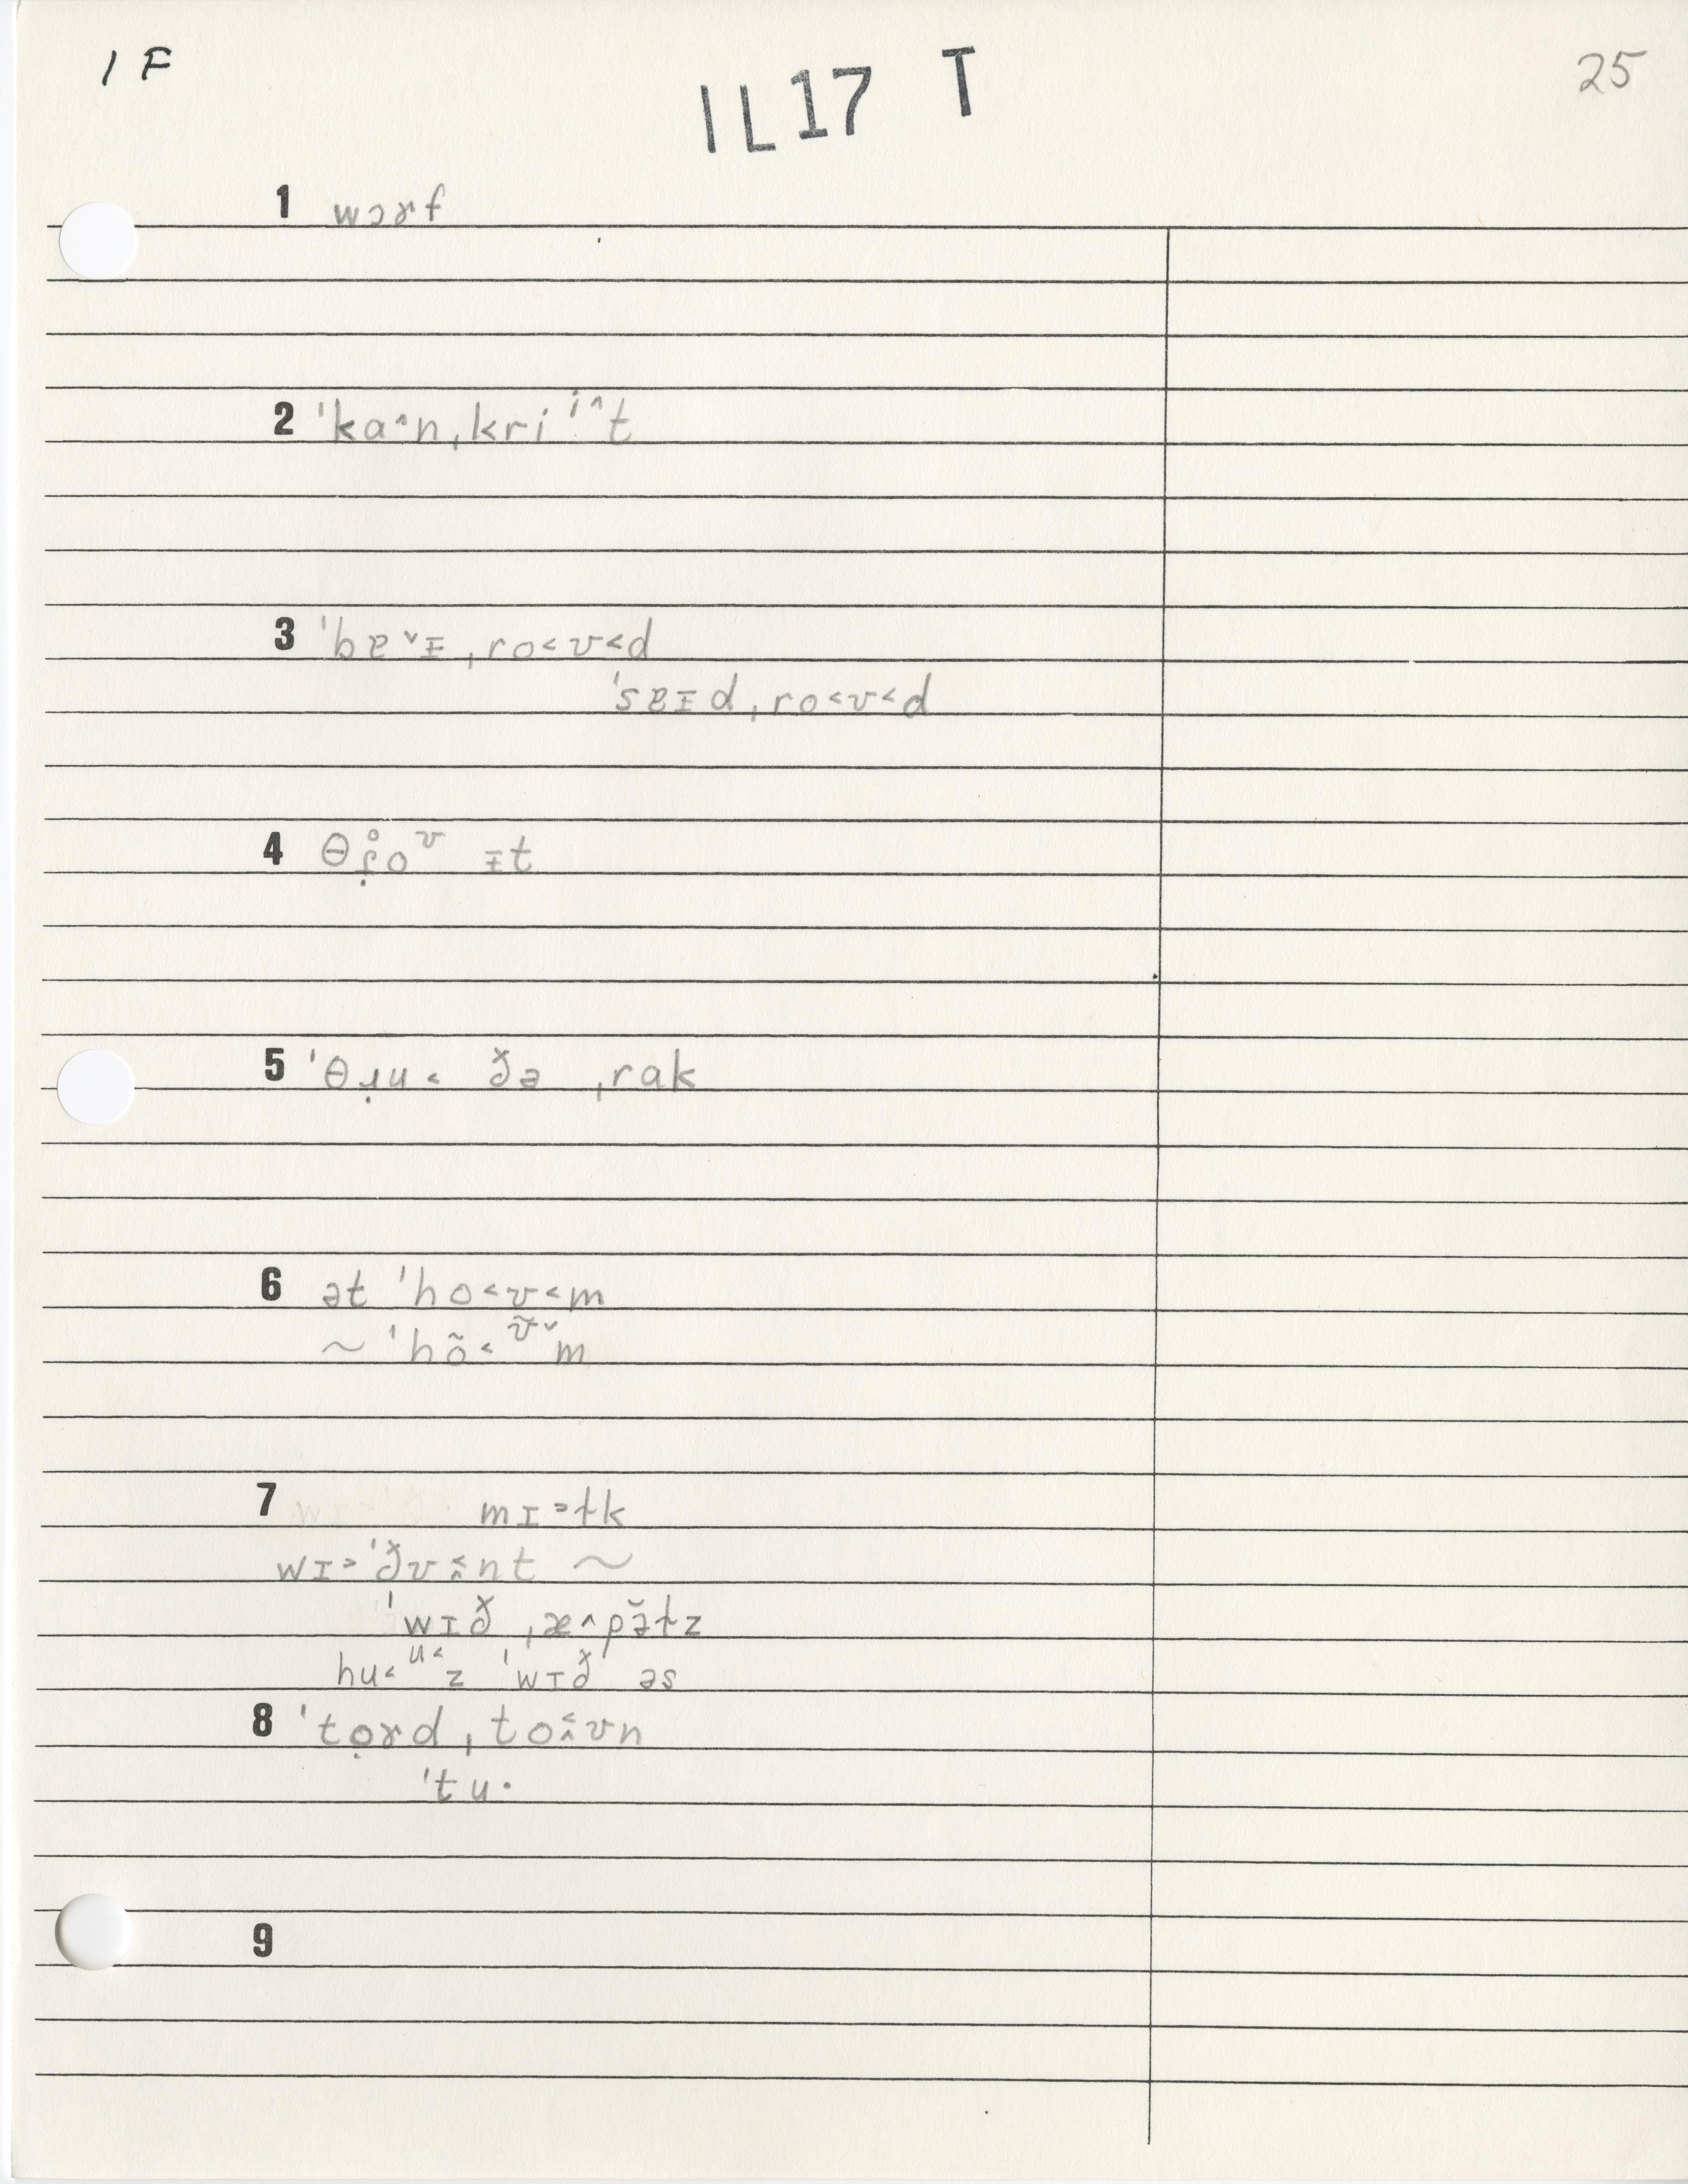 1 F
IL17 T
25
1 wɔɤf
2 ˈka˄n ˌkri ⁱ˄t
3 ˈbɐ˅ᵻ ˌro˂ʊ˂d
ˈsɐᵻd ˌro˂ʊ˂d
4 θɾ̣̊oᶷ ᵻt
5 ˈθɹ̣u˂ ðə ˌrak
6 ət ˈho˂ʊ˂m
~ ˈhõ˂ʊ̃˅m
7 mɪ˃ɫk
wɪ˃ˈðʊ˂˄nt ~
ˈwɪð ˌæ˄pə̆ɫz
hu˂ᵘ˂z ˈwɪð əs
8 ˈtọɤd ˌto˂˄ʊn
ˈtu·
9